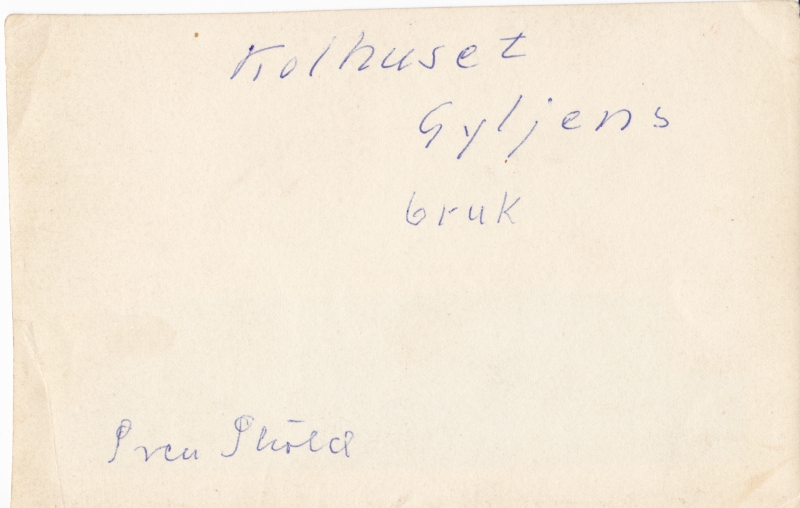 Kolhuset
Gyljens
bruk
Sven Sköld